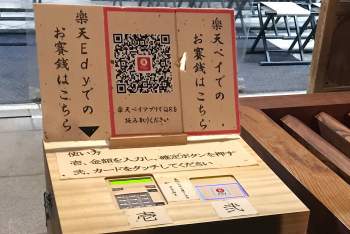 楽天Edyでの
お賽銭はこちら
楽天ペイでの
お賽銭はこちら
楽天ペイアプリでQRを
読み取りください
使い方
壱、金額を入力し、確定ボタンを押す
弐、カードをタッチしてください
壱
弐